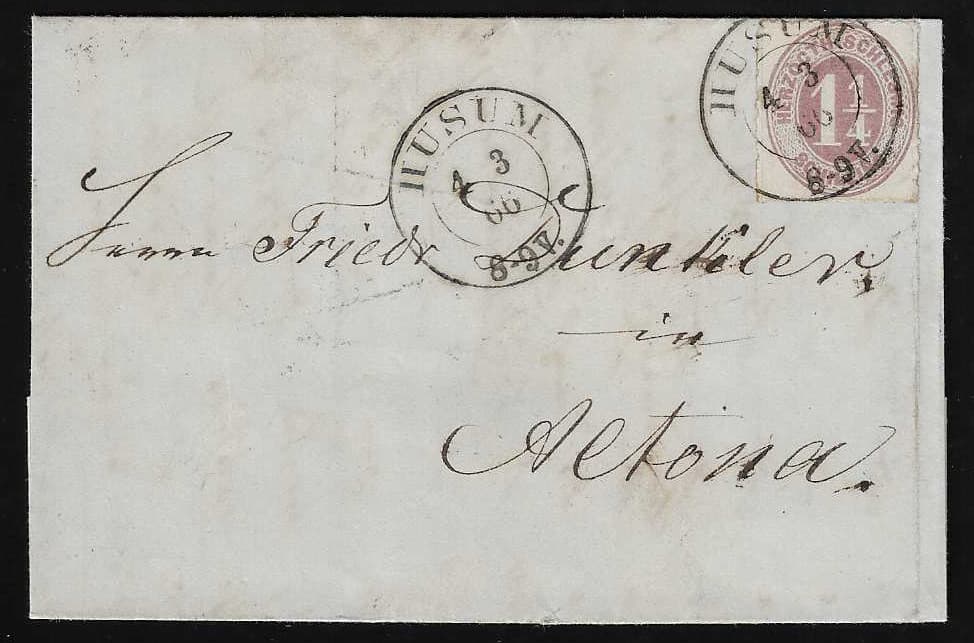 HUSUM
4 3
66
8-9 V.
HUSUM
4 3
66
8-9 V.
HERZOGTH. SCHLESWIG
1 1/4
Herrn Friedr
in
Altona.